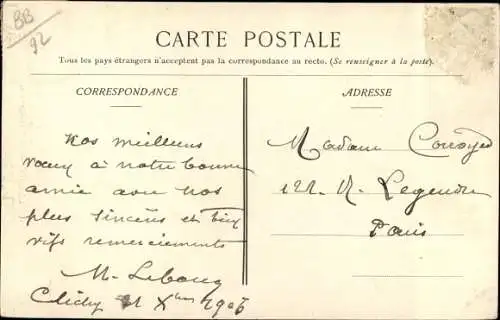 BB
92
CARTE POSTALE
Tous les pays étrangers n'acceptent pas la correspondance au recto. (Se renseigner à la poste).
CORRESPONDANCE
Nos meilleurs
voeux à notre bonne
amie avec nos
plus sincères et bien
vifs remerciements
M. Lebourg
Clichy 1906
ADRESSE
Madame
R. Legendre
Paris